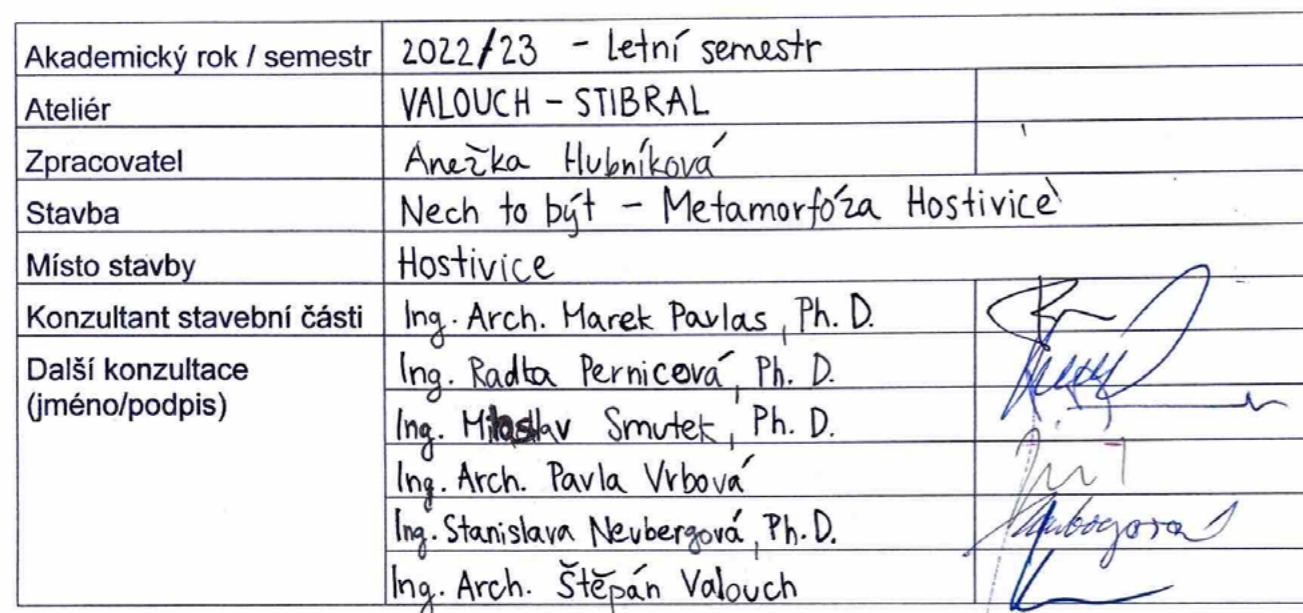 Akademický rok / semestr 2022/23 - Letní semestr
Ateliér VALOUCH - STIBRAL
Zpracovatel Anežka Hubníková
Stavba Nech to být - Metamorfóza Hostivice
Místo stavby Hostivice
Konzultant stavební části Ing. Arch. Marek Pavlas, Ph. D.
Další konzultace Ing. Radka Pernicová, Ph. D.
(jméno/podpis) Ing. Smutek, Ph. D.
Ing. Arch. Pavla Vrbová
Ing. Stanislava Neubergová, Ph. D.
Ing. Arch. Štěpán Valouch